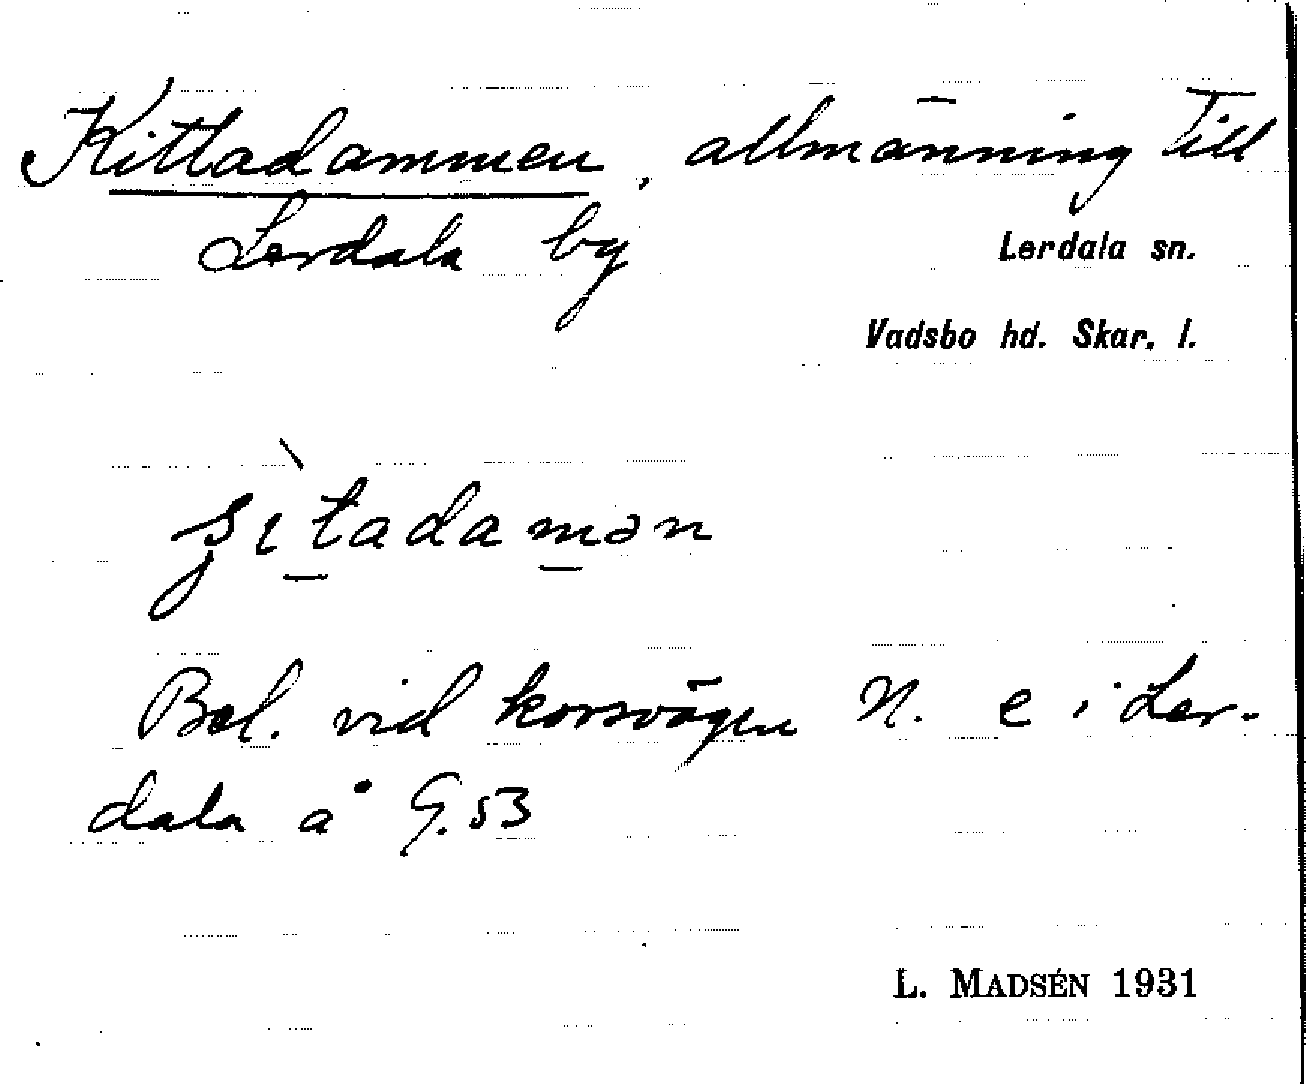 Kittadammen, allmänning till
Lerdala by
Lerdala sn.
Vadsbo hd. Skar. l.
Bel. vid korsvägen N. e i Ler-
dala å G. 53
L. MADSÉN 1931